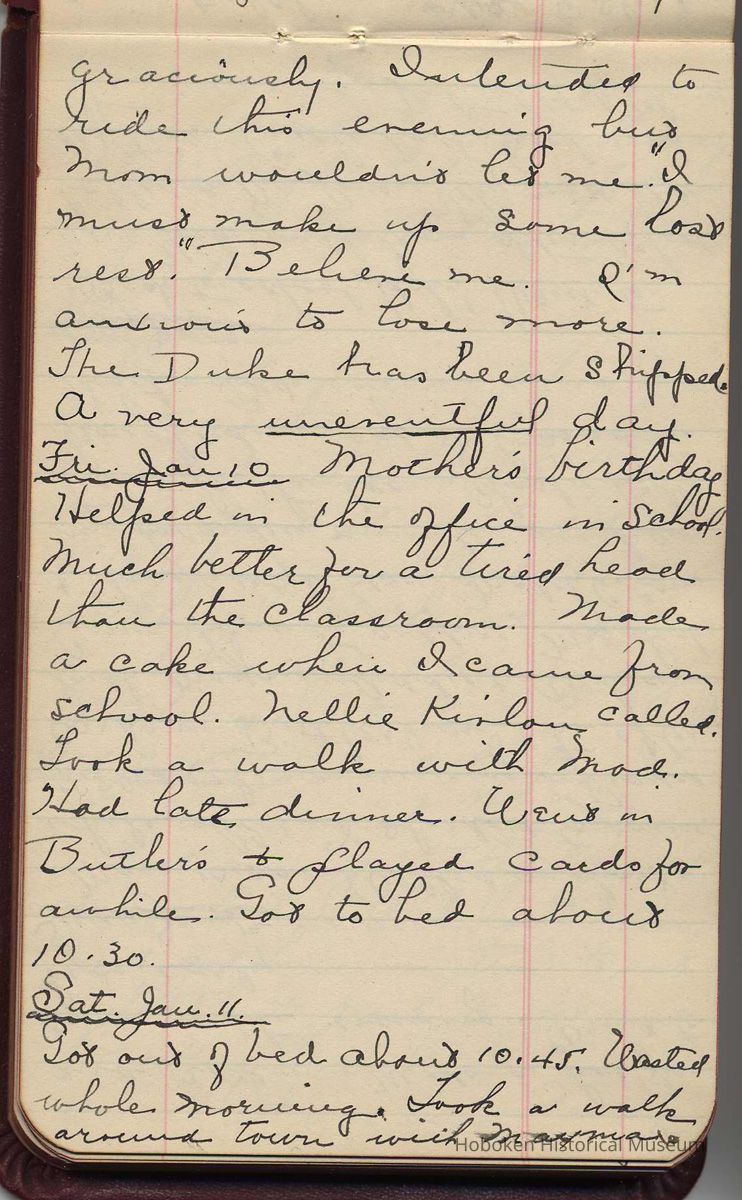 graciously. Intended to
ride this evening but
Mom wouldn't let me. "I
must make up some lost
rest." Believe me. I'm
anxious to lose more.
The Duke has been shipped.
A very uneventful day.
Fri. Jan 10 Mother's birthday
Helped in the office in school.
Much better for a tired head
than the classroom. Made
a cake when I came from
school. Nellie called.
Took a walk with Mad.
Had late dinner. Went in
Butler's & played cards for
awhile. Got to bed about
10.30.
Sat. Jan. 11.
Got out of bed about 10.45. Wasted
whole morning. Took a walk
around town with
Hoboken Historical Museum